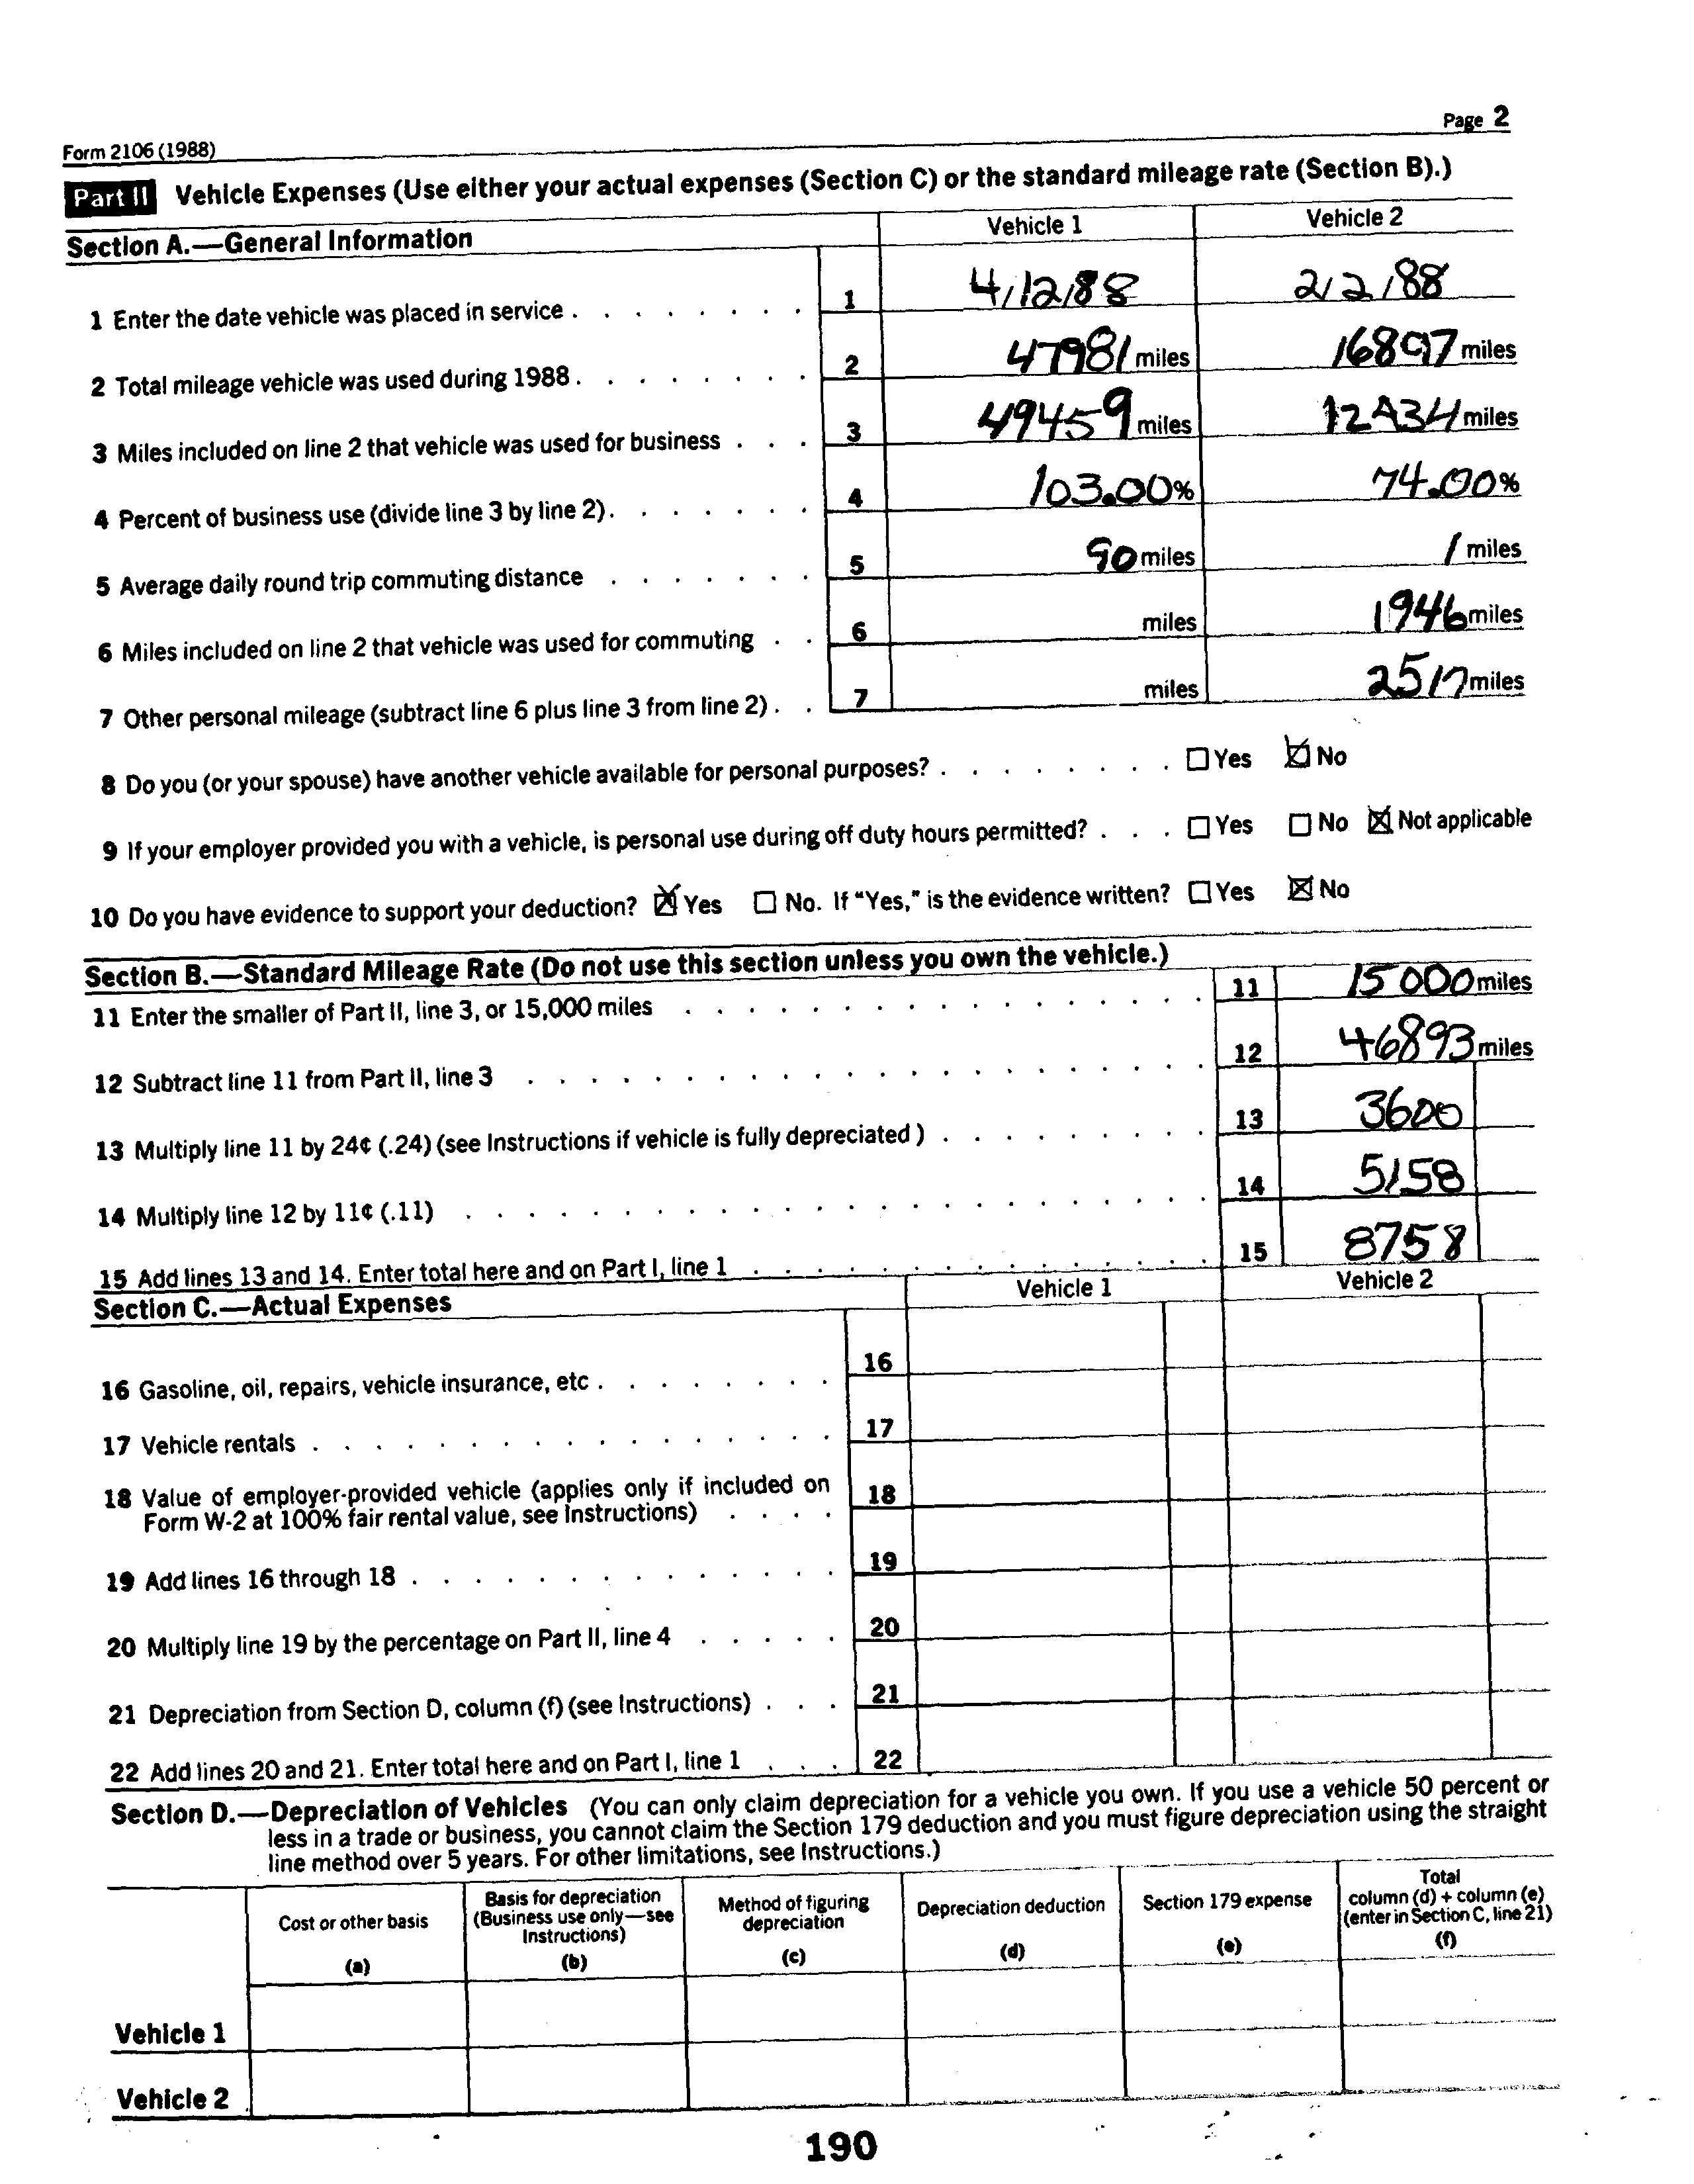 Form 2106 (1988) Page 2
Part II Vehicle Expenses (Use either your actual expenses (Section C) or the standard mileage rate (Section B).)
Section A.—General Information Vehicle 1 Vehicle 2
1 Enter the date vehicle was placed in service . . . . . . . . 1 4/12/88 2/2/88
2 Total mileage vehicle was used during 1988 . . . . . . . . 2 47981 miles 16897 miles
3 Miles included on line 2 that vehicle was used for business . . . 3 49459 miles 12434 miles
4 Percent of business use (divide line 3 by line 2) . . . . . . . 4 103.00% 74.00%
5 Average daily round trip commuting distance . . . . . . . 5 90 miles 1 miles
6 Miles included on line 2 that vehicle was used for commuting . . 6 miles 1946 miles
7 Other personal mileage (subtract line 6 plus line 3 from line 2) . . 7 miles 2517 miles
8 Do you (or your spouse) have another vehicle available for personal purposes? . . . . . . . . ☐ Yes ☒ No
9 If your employer provided you with a vehicle, is personal use during off duty hours permitted? . . . ☐ Yes ☐ No ☒ Not applicable
10 Do you have evidence to support your deduction? ☒ Yes ☐ No. If “Yes,” is the evidence written? ☐ Yes ☒ No
Section B.—Standard Mileage Rate (Do not use this section unless you own the vehicle.)
11 Enter the smaller of Part II, line 3, or 15,000 miles . . . . . . . . . . . . . . . . . 11 15 000 miles
12 Subtract line 11 from Part II, line 3 . . . . . . . . . . . . . . . . . . . . . . 12 46893 miles
13 Multiply line 11 by 24¢ (.24) (see Instructions if vehicle is fully depreciated ) . . . . . . . . . 13 3600
14 Multiply line 12 by 11¢ (.11) . . . . . . . . . . . . . . . . . . . . . . . . 14 5158
15 Add lines 13 and 14. Enter total here and on Part I, line 1 . . . . . . . . . . . . . . . 15 8758
Section C.—Actual Expenses Vehicle 1 Vehicle 2
16 Gasoline, oil, repairs, vehicle insurance, etc . . . . . . . . 16
17 Vehicle rentals . . . . . . . . . . . . . . . . . 17
18 Value of employer-provided vehicle (applies only if included on
Form W-2 at 100% fair rental value, see Instructions) . . . . 18
19 Add lines 16 through 18 . . . . . . . . . . . . . . 19
20 Multiply line 19 by the percentage on Part II, line 4 . . . . . 20
21 Depreciation from Section D, column (f) (see Instructions) . . . 21
22 Add lines 20 and 21. Enter total here and on Part I, line 1 . . . 22
Section D.—Depreciation of Vehicles (You can only claim depreciation for a vehicle you own. If you use a vehicle 50 percent or
less in a trade or business, you cannot claim the Section 179 deduction and you must figure depreciation using the straight
line method over 5 years. For other limitations, see Instructions.)
Cost or other basis
(a)
Basis for depreciation
(Business use only—see
Instructions)
(b)
Method of figuring
depreciation
(c)
Depreciation deduction
(d)
Section 179 expense
(e)
Total
column (d) + column (e)
(enter in Section C, line 21)
(f)
Vehicle 1
Vehicle 2
190